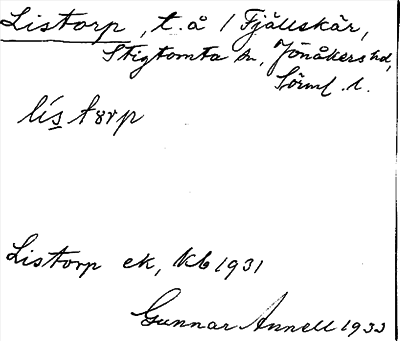 Listorp, t. å 1 Fjällskär,
Stigtomta sn, Jönåkers hd,
Sörml. l.
lístȣrp
Listorp ek, Kb 1931
Gunnar Annell 1933